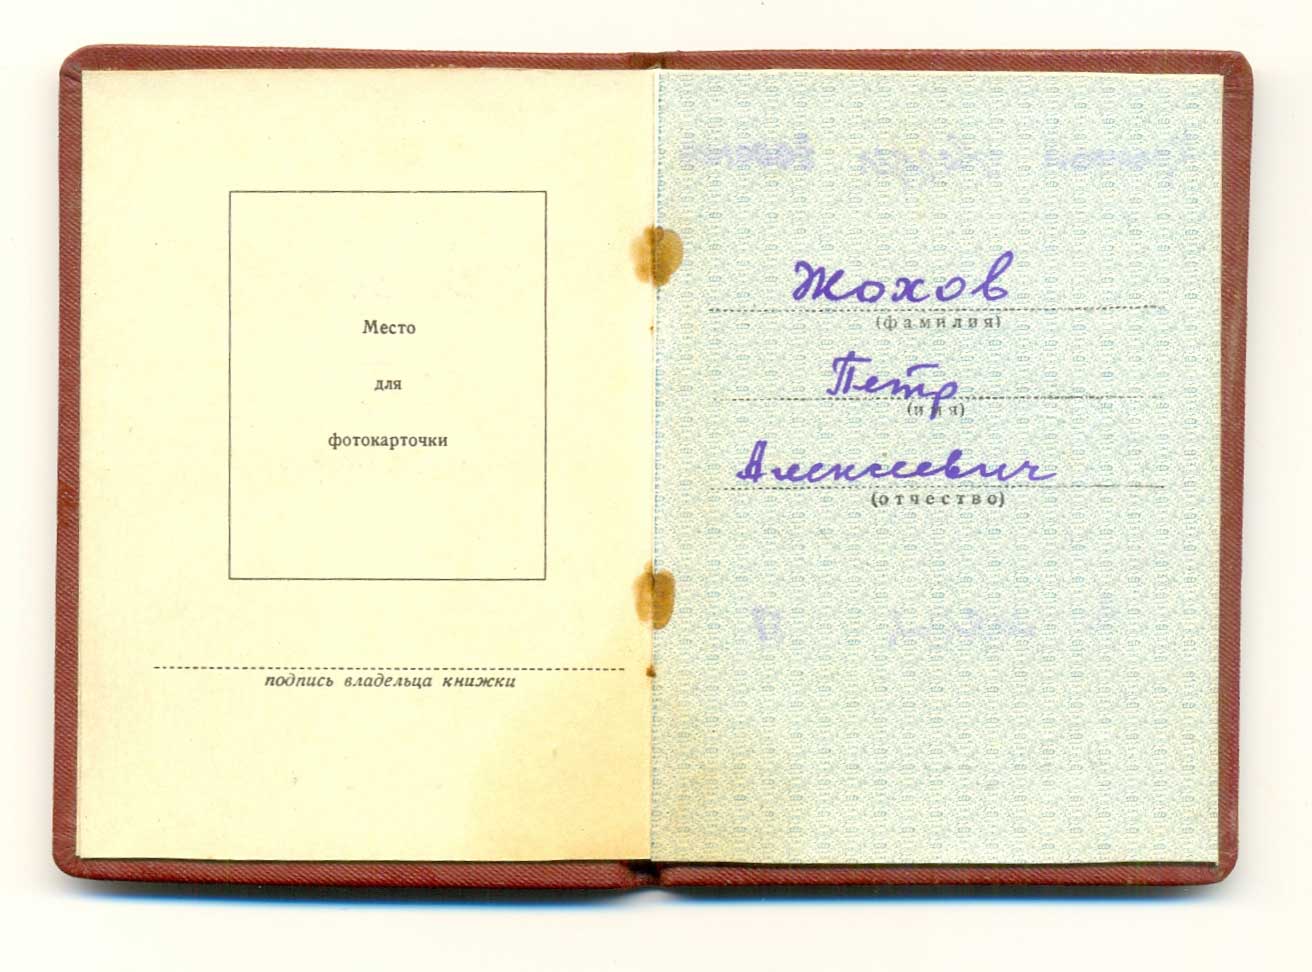 Место
для
фотокарточки
подпись владельца книжки
Жохов
(фамилия)
Петр
(имя)
Алексеевич
(отчество)